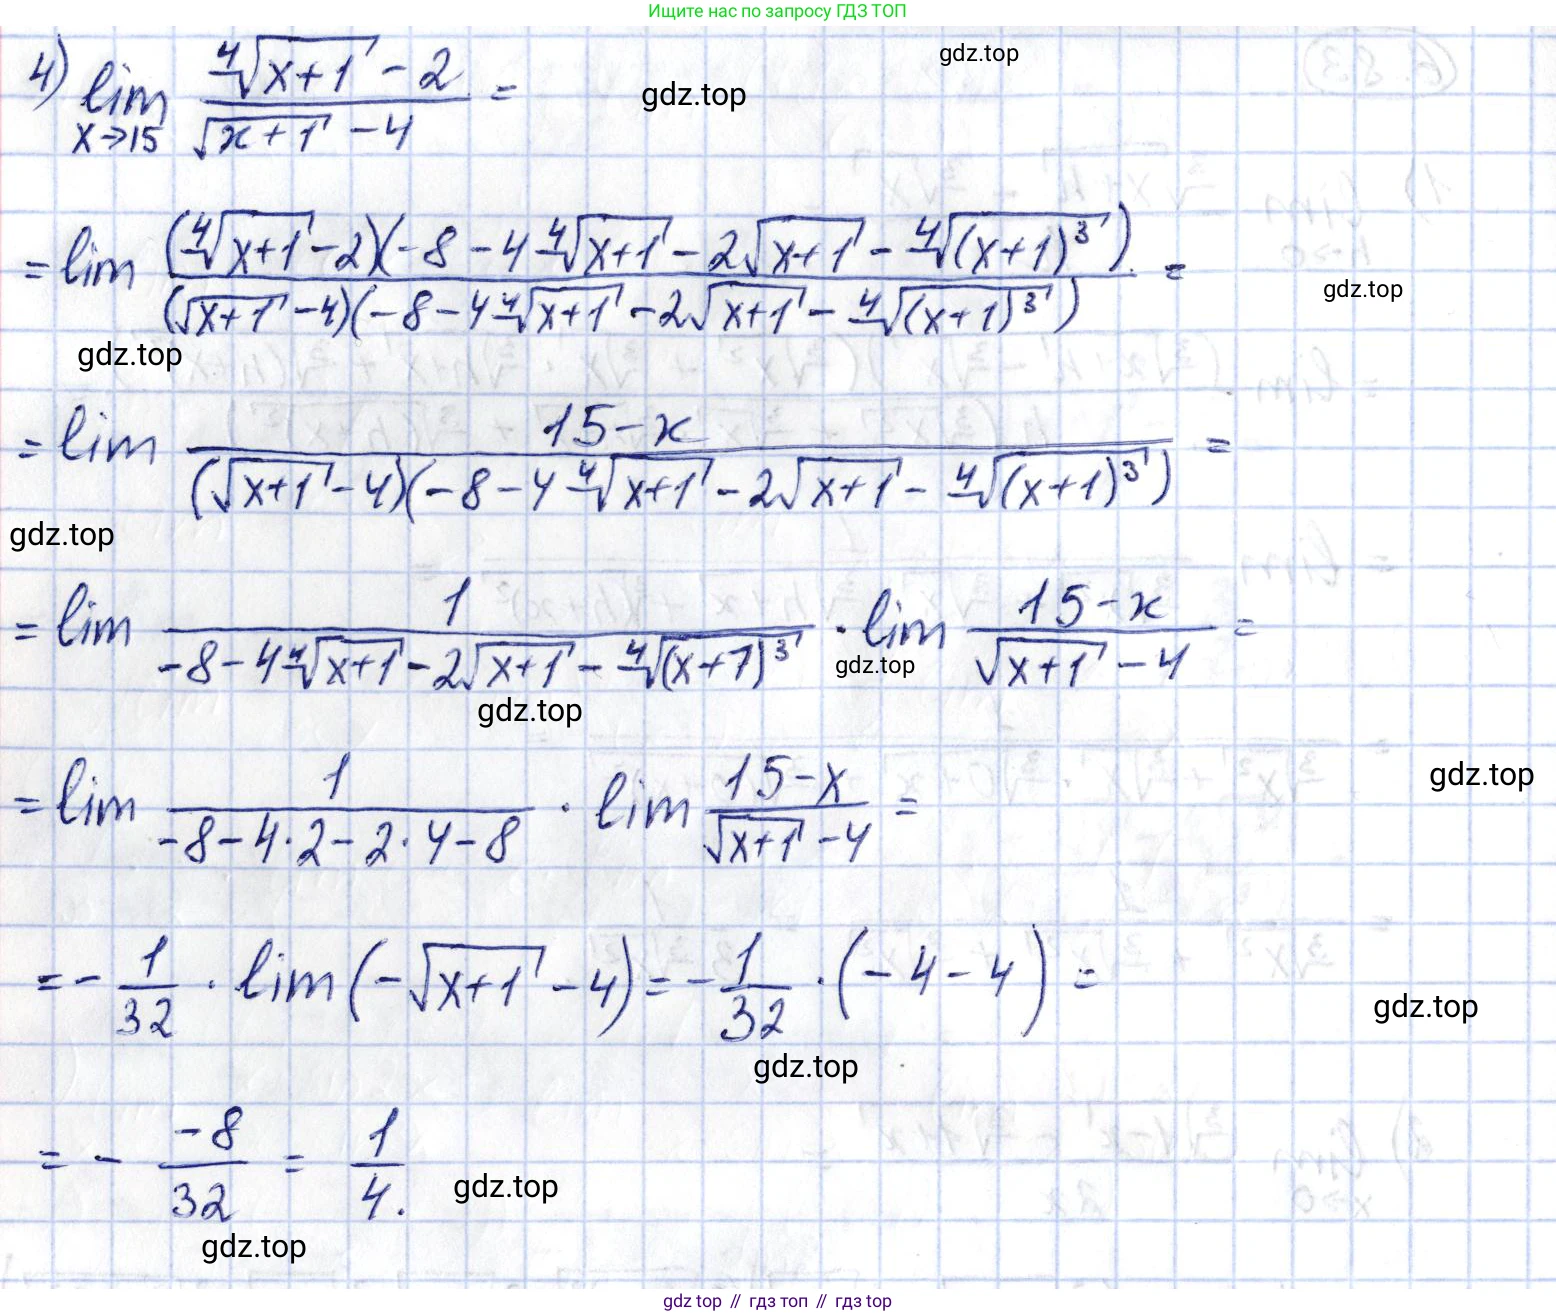 Ищите нас по запросу ГДЗ ТОП
4) lim x→15 (∜(x+1) - 2)/(√(x+1) - 4) =
gdz.top
gdz.top
= lim ((∜(x+1) - 2)(-8 - 4∜(x+1) - 2√(x+1) - ∜((x+1)³)))/((√(x+1) - 4)(-8 - 4∜(x+1) - 2√(x+1) - ∜((x+1)³))) =
gdz.top
gdz.top
= lim (15-x)/((√(x+1) - 4)(-8 - 4∜(x+1) - 2√(x+1) - ∜((x+1)³))) =
gdz.top
= lim 1/(-8 - 4∜(x+1) - 2√(x+1) - ∜((x+1)³)) · lim (15-x)/(√(x+1) - 4) =
gdz.top
gdz.top
= lim 1/(-8-4·2-2·4-8) · lim (15-x)/(√(x+1) - 4) =
gdz.top
= - 1/32 · lim (-√(x+1) - 4) = - 1/32 · (-4-4) =
gdz.top
gdz.top
= - -8/32 = 1/4.
gdz.top
gdz.top
gdz top // гдз топ // гдз top